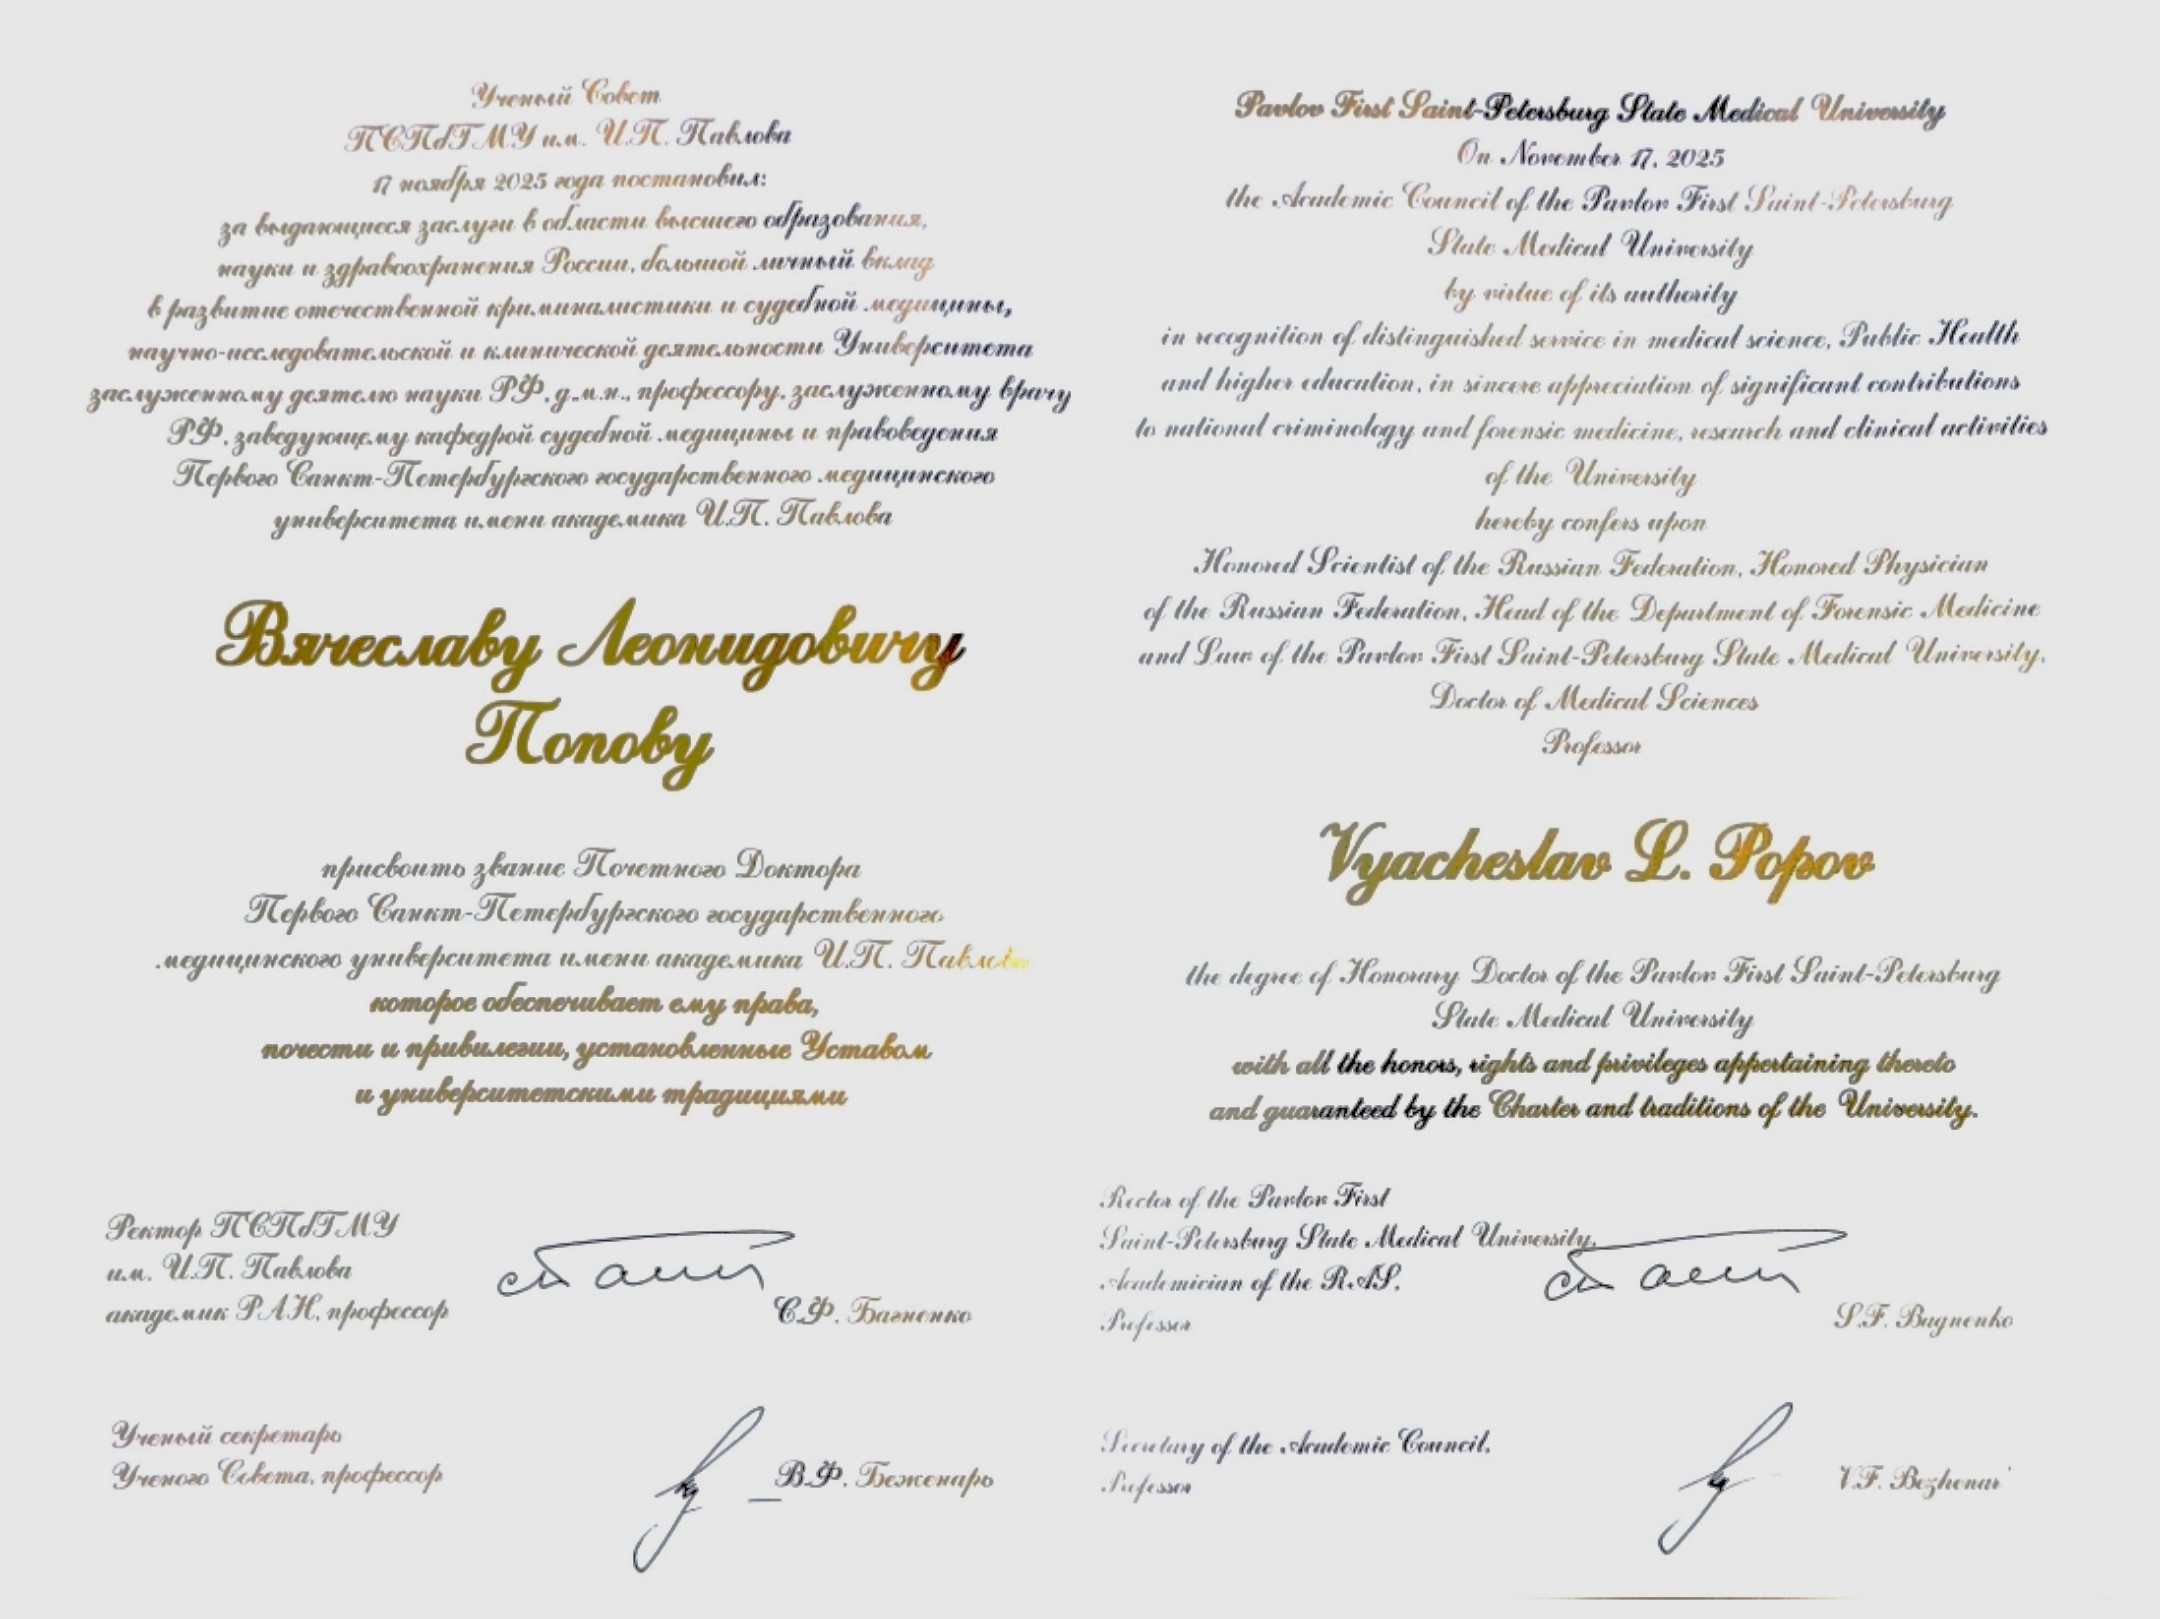 Ученый Совет
ПСПбГМУ им. И.П. Павлова
17 ноября 2025 года постановил:
за выдающиеся заслуги в области высшего образования,
науки и здравоохранения России, большой личный вклад
в развитие отечественной криминалистики и судебной медицины,
научно-исследовательской и клинической деятельности Университета
заслуженному деятелю науки РФ, д.м.н., профессору, заслуженному врачу
РФ, заведующему кафедрой судебной медицины и правоведения
Первого Санкт-Петербургского государственного медицинского
университета имени академика И.П. Павлова
Вячеславу Леонидовичу
Попову
присвоить звание Почетного Доктора
Первого Санкт-Петербургского государственного
медицинского университета имени академика И.П. Павлова
которое обеспечивает ему права,
почести и привилегии, установленные Уставом
и университетскими традициями
Ректор ПСПбГМУ
им. И.П. Павлова
академик РАН, профессор
С.Ф. Багненко
Ученый секретарь
Ученого Совета, профессор
В.Ф. Беженарь
Pavlov First Saint-Petersburg State Medical University
On November 17, 2025
the Academic Council of the Pavlov First Saint-Petersburg
State Medical University
by virtue of its authority
in recognition of distinguished service in medical science, Public Health
and higher education, in sincere appreciation of significant contributions
to national criminology and forensic medicine, research and clinical activities
of the University
hereby confers upon
Honored Scientist of the Russian Federation, Honored Physician
of the Russian Federation, Head of the Department of Forensic Medicine
and Law of the Pavlov First Saint-Petersburg State Medical University,
Doctor of Medical Sciences
Professor
Vyacheslav L. Popov
the degree of Honorary Doctor of the Pavlov First Saint-Petersburg
State Medical University
with all the honors, rights and privileges appertaining thereto
and guaranteed by the Charter and traditions of the University.
Rector of the Pavlov First
Saint-Petersburg State Medical University,
Academician of the RAS,
Professor
S.F. Bagnenko
Secretary of the Academic Council,
Professor
V.F. Bezhenar'